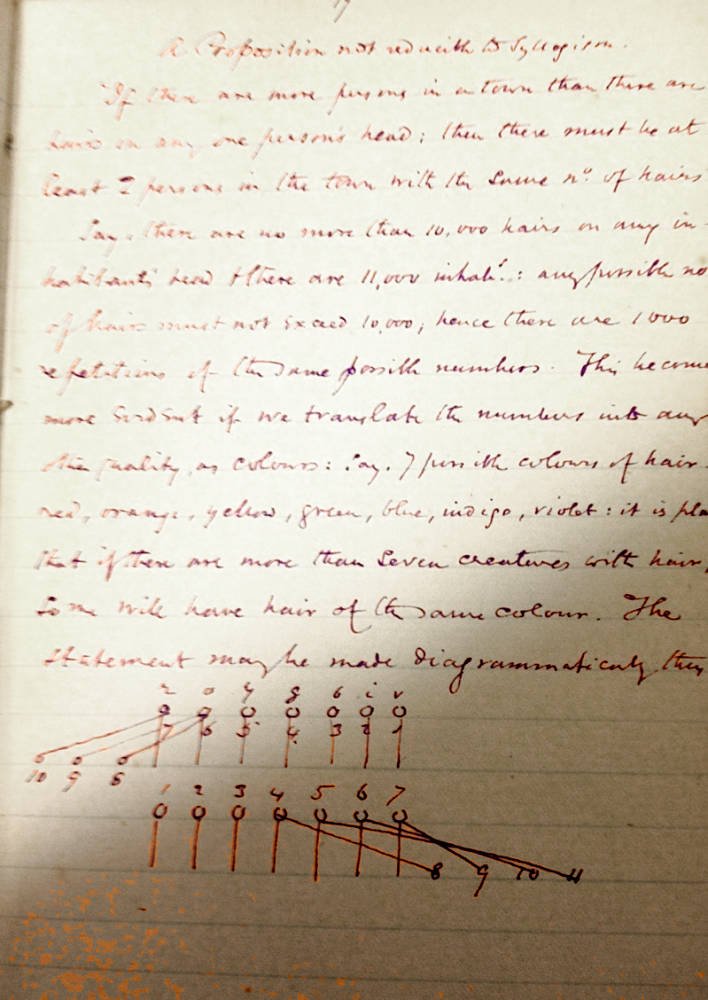 17
A Proposition not reducible to Syllogism.
"If there are more persons in a town than there are
hairs on any one person's head; then there must be at
least 2 persons in the town with the same nº. of hairs
Say, there are no more than 10,000 hairs on any in-
habitants' head & there are 11,000 inhabts.: any possible no
of hairs must not exceed 10,000; hence there are 1000
repetitions of the same possible numbers. This become
more evident if we translate the numbers into any
other quality, as colours: Say. 7 possible colours of hair.
red, orange, yellow, green, blue, indigo, violet: it is pla
that if there are more than seven creatures with hair,
some will have hair of the same colour. The
statement may be made diagrammatically thus
r o y g b i v
7 6 5 4 3 2 1
10 9 8
1 2 3 4 5 6 7
8 9 10 11